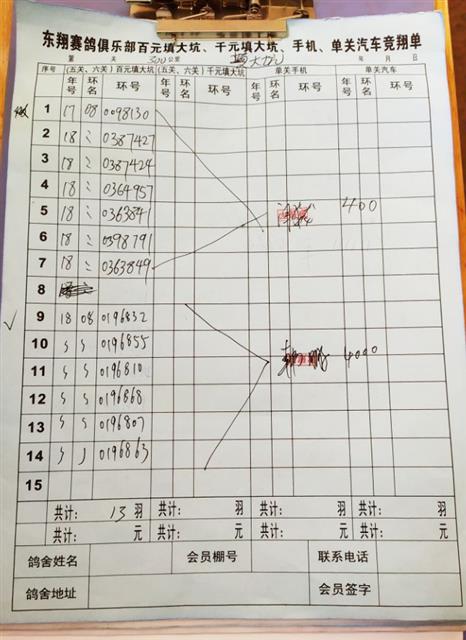 东翔赛鸽俱乐部百元填大坑、千元填大坑、手机、单关汽车竞翔单
第 关 300公里 填大坑 年 月 日
序号 (五关、六关)百元填大坑 (五关、六关)千元填大坑 单关手机 单关汽车
年号 环名 环号 年号 环名 环号 年号 环名 环号 年号 环名 环号
1 17 08 0098130
2 18 〃 0387427
3 18 〃 0387424
4 18 〃 0364957
5 18 〃 0363841 400
6 18 〃 0398791
7 18 〃 0363849
8
9 18 08 0196832
10 〃 〃 0196855 4000
11 〃 〃 0196810
12 〃 〃 0196868
13 〃 〃 0196807
14 〃 〃 0196863
15
共计: 13 羽 共计: 羽 共计: 羽 共计: 羽
共计: 元 共计: 元 共计: 元 共计: 元
鸽舍姓名 会员棚号 联系电话
鸽舍地址 会员签字